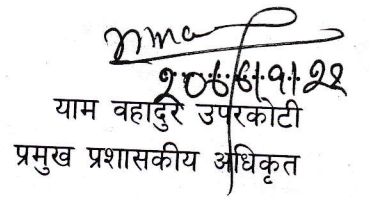 २०६६।९।२२
याम वहादुर उपरकोटी
प्रमुख प्रशासकीय अधिकृत